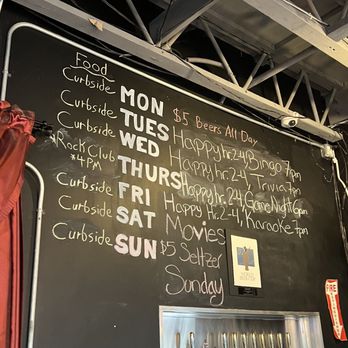 Food
Curbside MON $5 Beers All Day
Curbside TUES Happy hr. 2-4, Bingo 7pm
Curbside WED Happy hr. 2-4, Trivia 7pm
*Rock Club *4PM THURS Happy hr. 2-4, Game Night 6pm
Curbside FRI Happy Hr. 2-4, Karaoke 9pm
Curbside SAT Movies
Curbside SUN $5 Seltzer
Sunday
FIRE